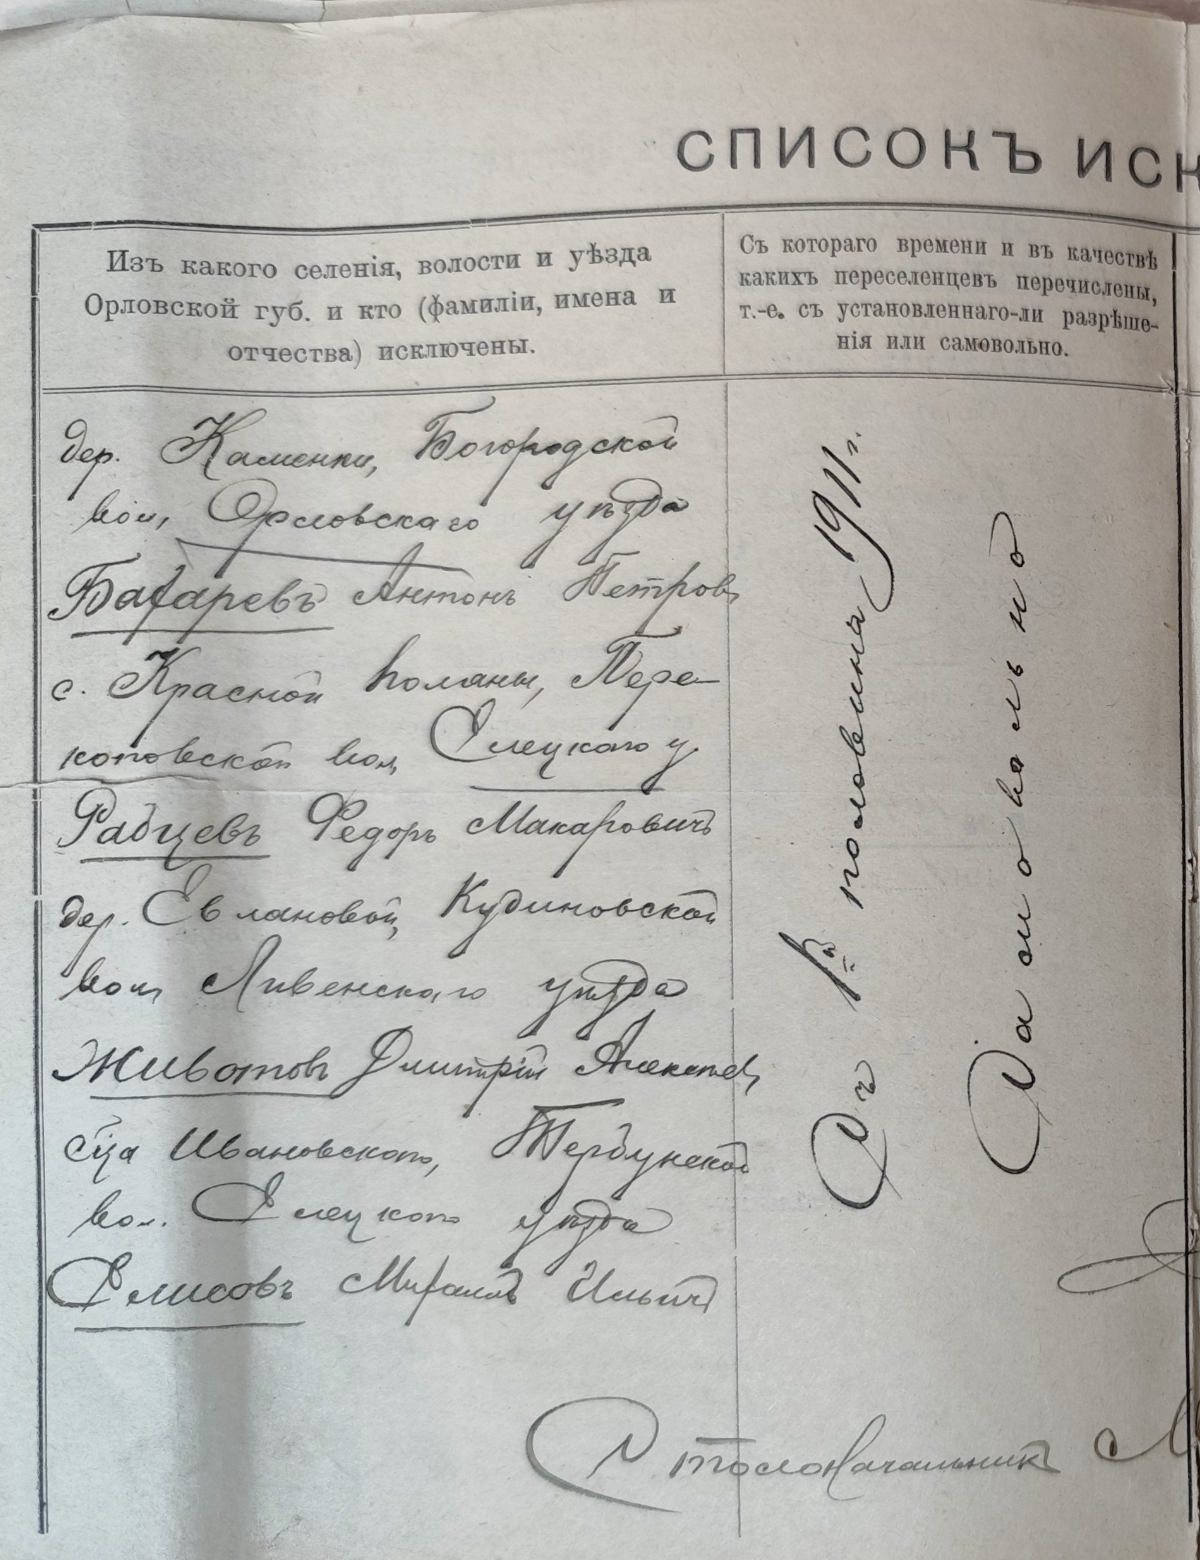 СПИСОКЪ ИСК
Изъ какого селенія, волости и уѣзда
Орловской губ. и кто (фамиліи, имена и
отчества) исключены.
Съ котораго времени и въ качествѣ
какихъ переселенцевъ перечислены,
т.-е. съ установленнаго-ли разрѣше-
нія или самовольно.
дер. Каменки, Богородской
вол, Орловскаго уѣзда
Антонъ Петровъ
с. Красной поляны, Пере-
коповской вол Елецкаго у
Рабцевъ Федоръ Макаровичъ
дер. Евлановой, Кудиновской
вол Ливенскаго уѣзда
Животовъ Дмитрій Алексѣев
с-ца Ивановскаго, Тербунской
вол. Елецкаго уѣзда
Елисовъ Михаилъ Ильичъ
Съ 1й половины 1911 г.
Самовольно
Столоначальникъ